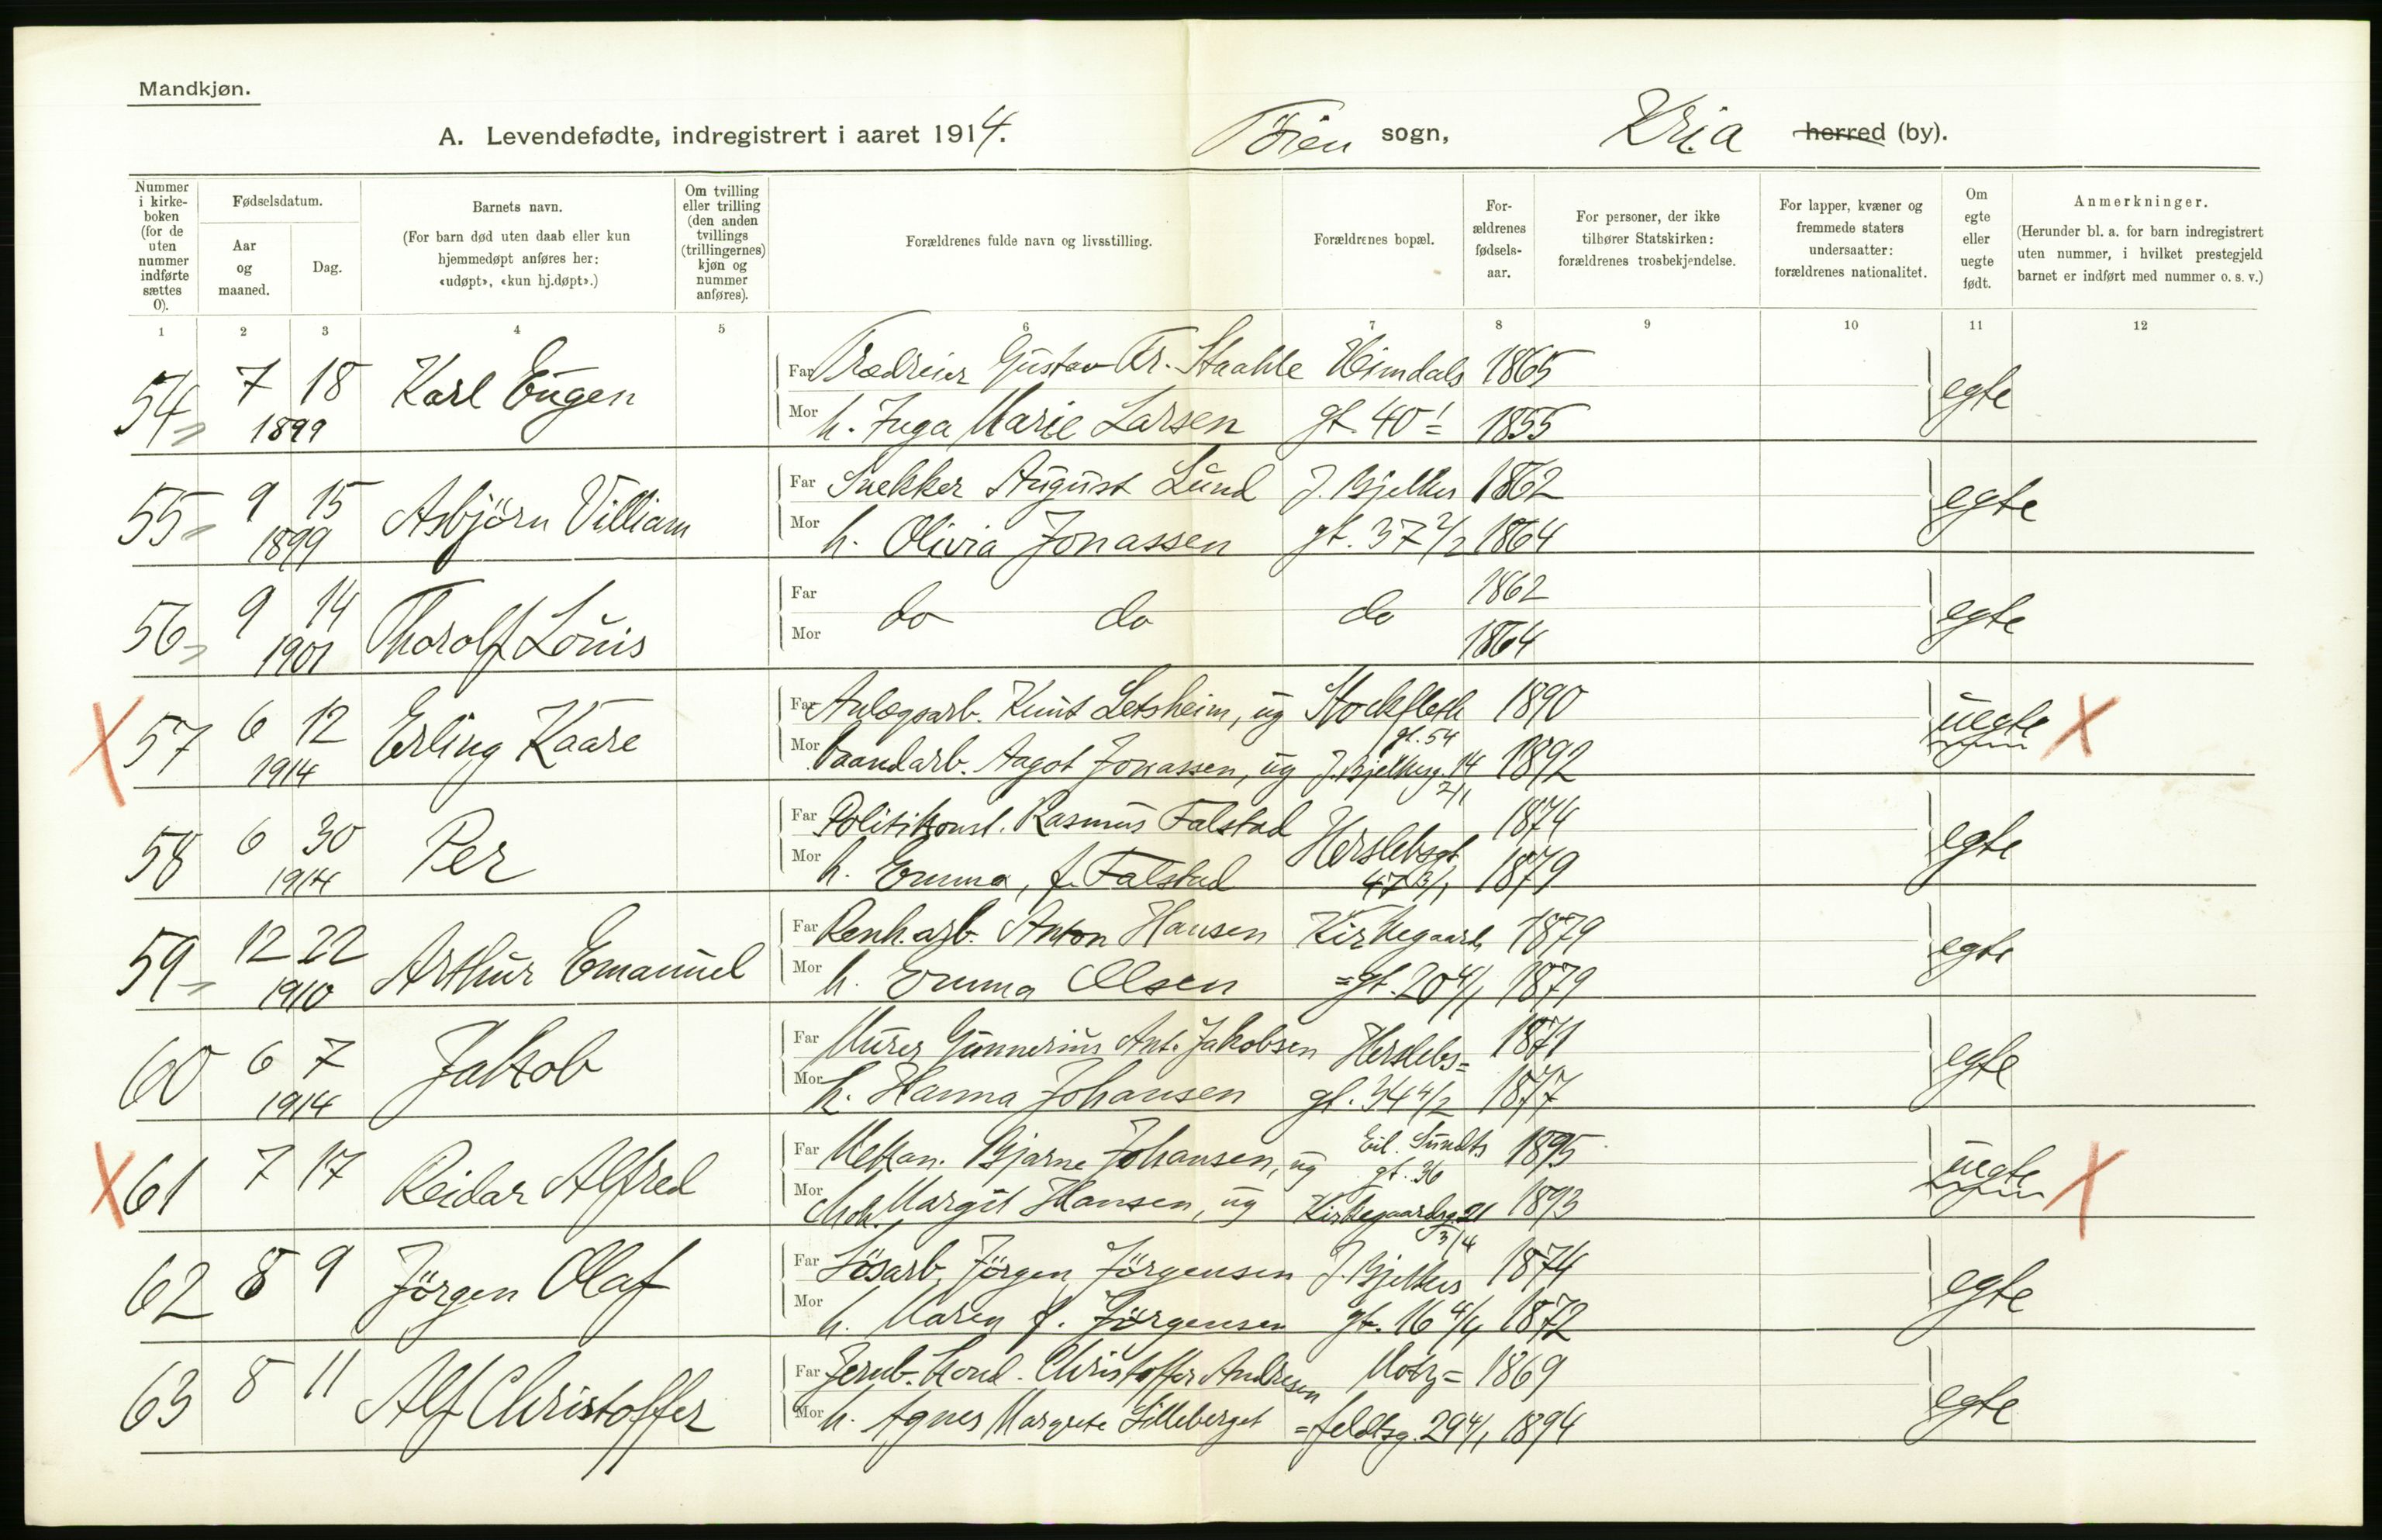 Mandkjøn.
A. Levendefødte, indregistrert i aaret 1914. Töien sogn, Kr.ia herred (by).
Nummer i kirkeboken (for de uten nummer indførte sættes 0).
Fødselsdatum.
Aar og maaned.
Dag.
Barnets navn.
(For barn død uten daab eller kun hjemmedøpt anføres her: «udøpt», «kun hj.døpt».)
Om tvilling eller trilling (den anden tvillings (trillingernes) kjøn og nummer anføres).
Forældrenes fulde navn og livsstilling.
Forældrenes bopæl.
Forældrenes fødselsaar.
For personer, der ikke tilhører Statskirken: forældrenes trosbekjendelse.
For lapper, kvæner og fremmede staters undersaatter: forældrenes nationalitet.
Om egte eller uegte født.
Anmerkninger.
(Herunder bl. a. for barn indregistrert uten nummer, i hvilket prestegjeld barnet er indført med nummer o. s. v.)
1 2 3 4 5 6 7 8 9 10 11 12
54 7 18 Karl Eugen Far Gustav Fr. Staahle Heimdals 1865 egte
1899 Mor h. Inga Marie Larsen gt. 40 1855
55 9 15 Asbjörn Villiam Far Snekker August Lund J. Bjelkes 1862 egte
1899 Mor h. Olivia Jonassen gt. 37 2/2 1864
56 9 14 Thorolf Louis Far do do do 1862 egte
1901 Mor 1864
X 57 6 12 Erling Kaare Far Anlægsarb. Knut Letsheim, ug Stockfleth gt. 54 1890 uegte X
1914 Mor Aagot Jonassen, ug J. Bjelkesg. 14 2/1 1892
58 6 30 Per Far Politikonst. Rasmus Falstad Herslebsgt. 1874 egte
1914 Mor h. Emma, f. Falstad 47 3/1 1879
59 12 22 Arthur Emanuel Far Renh.arb. Anton Hansen Kirkegaards 1879 egte
1910 Mor h. Emma Olsen =gt. 20 4/1 1879
60 6 7 Jakob Far Murer Gunnerius Ant. Jakobsen Herslebs= 1871 egte
1914 Mor h. Hanna Johansen gt. 34 4/2 1877
X 61 7 17 Reidar Alfred Far Mekan. Bjarne Johansen, ug Eil. Sundts gt. 36 1895 uegte X
Mor Margit Hansen, ug Kirkegaardsg. 21 3/4 1893
62 8 9 Jörgen Olaf Far Lösarb. Jörgen Jörgensen J. Bjelkes 1874 egte
Mor h. Maren f. Jörgensen gt. 16 4/4 1872
63 8 11 Alf Christoffer Far Jernb. Kond. Christoffer Andresen Motz= 1869 egte
Mor h. Agnes Margrete Lilleberget =feldtsg. 29 4/1 1894